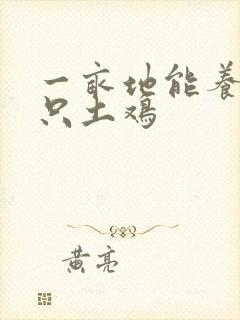 一亩地能养
只土鸡
黄亮